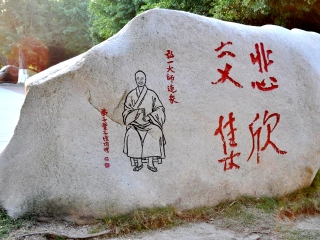 悲欣
交集
弘一大师造象